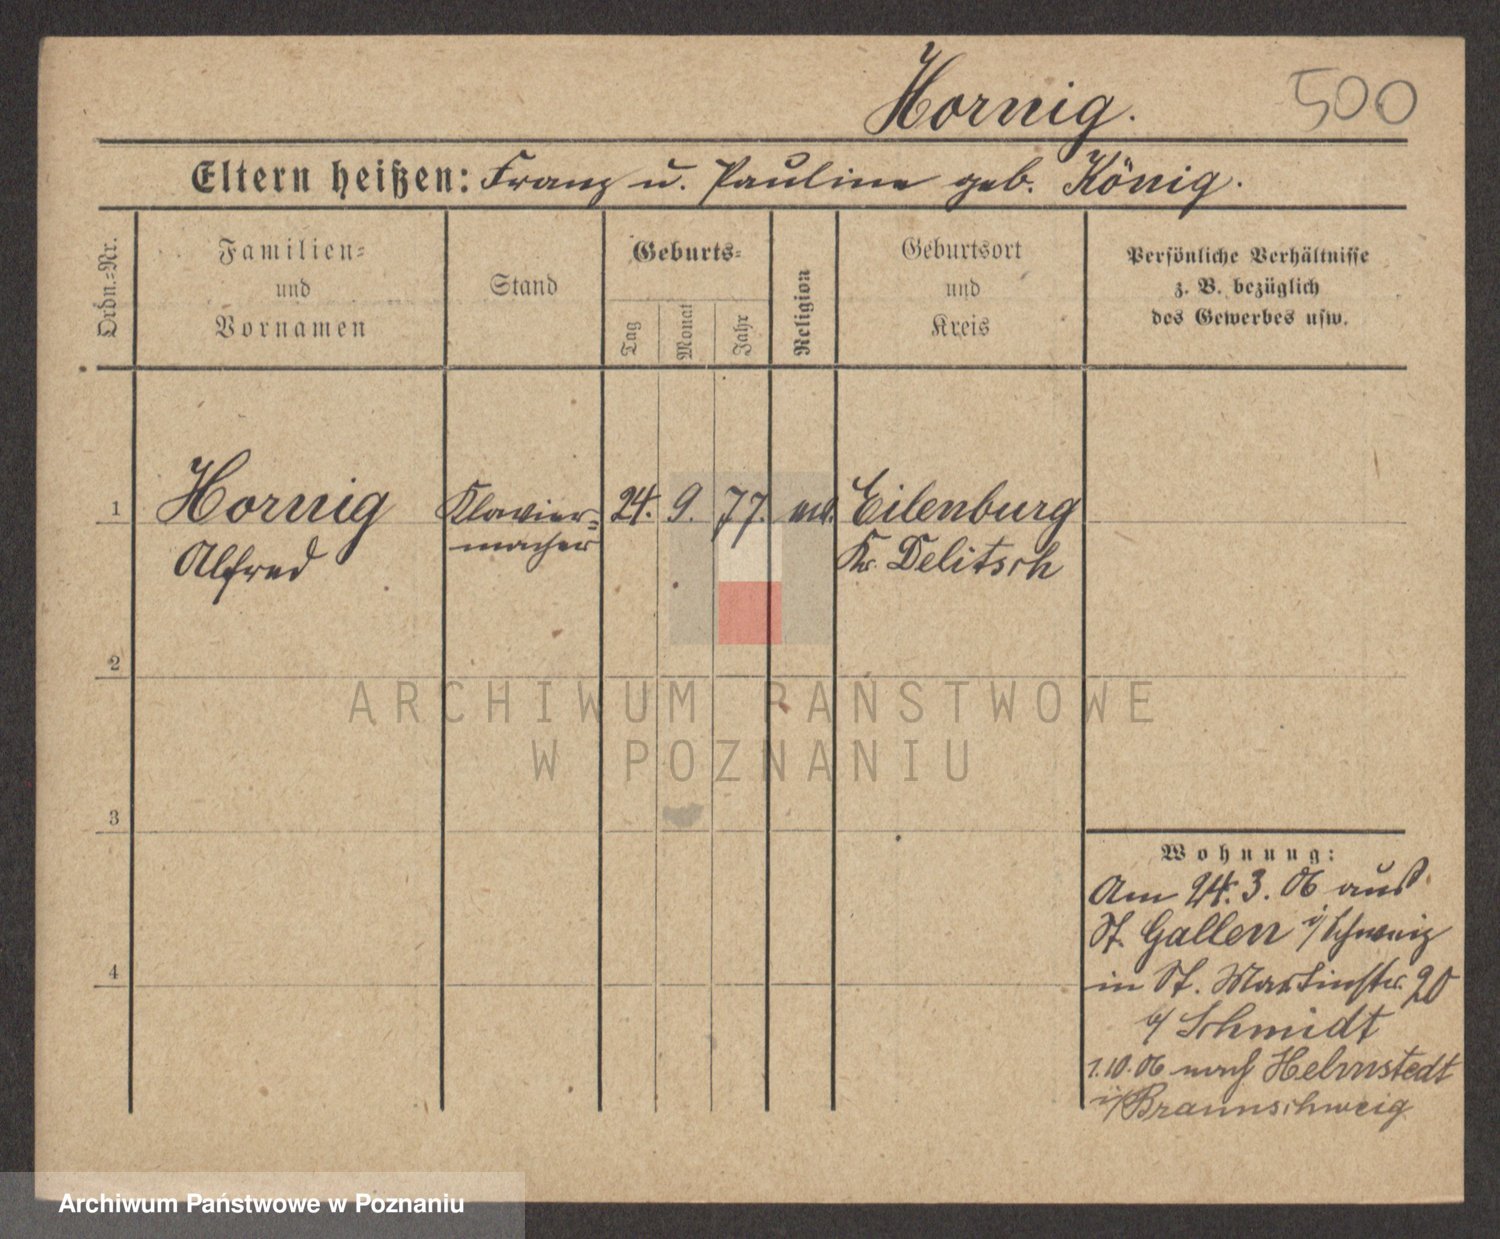 Hornig.
500
Eltern heißen: Franz u. Pauline geb. König.
Ordn.-Nr.
Familien-
und
Vornamen
Stand
Geburts-
Tag
Monat
Jahr
Religion
Geburtsort
und
Kreis
Persönliche Verhältnisse
z. B. bezüglich
des Gewerbes usw.
1 Hornig Klavier- 24. 9. 77. Eilenburg
Alfred macher Kr. Delitsch
2
3
4
Wohnung:
Am 24. 3. 06 aus
St. Gallen i/Schweiz
in St. Martinstr. 20
b/ Schmidt
1.10.06 nach Helmstedt
i/Braunschweig
ARCHIWUM PAŃSTWOWE
W POZNANIU
Archiwum Państwowe w Poznaniu